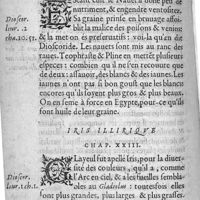 Estant cuit le Naueu donne peu de
nutriment, & engendre ventositez.
Sa graine prinse en bruuage affoi-
blit la malice des poisons & venins
& la met on es preseruatifs: voi-la qu'en dit
Dioscoride. Les nauets sont mis au ranc des
raues. Teophraste & Pline en mettẽt plusieurs
especes: combien qu'il n'en est cõneu que
de deux: assauoir, des blancs & des iaunes. Les
iaunes n'ont pas si bon goust que les blancs
encores qu'ils soyent plus grans & plus gros.
On en seme à force en Egypte pour-ce qu'ils
font huile de leur graine.
Dioscor.
liur. 2
cha. 105.
IRIS ILLIRIQVE
CHAP. XXIII.
Glayeul fut apellé Iris, pour la diuer-
sité des couleurs, qu'il a, comme
l'Arc en ciel, & a les fueilles sembla-
bles au Gladiolus: toutesfois elles
sont plus grandes, plus larges & plus grasses.
Dioscor.
liur. 1. ch. 1.